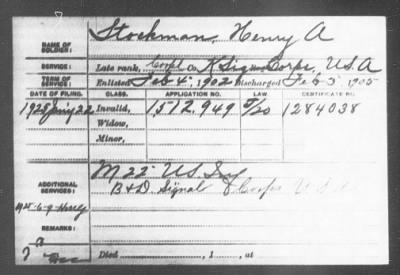 Stockman, Henry A
NAME OF SOLDIER:
SERVICE: Late rank, Corpl Co. K Signal Corps, U.S.A
TERM OF SERVICE: Enlisted Feb 4, 1902 Discharged Feb 3, 1905
DATE OF FILING. CLASS. APPLICATION NO. LAW. CERTIFICATE NO.
1925 22 Invalid, 1512.949 1284038
Widow,
Minor,
ADDITIONAL SERVICES: M 22 U.S. Inf
B & D. Signal Corps U.S.
REMARKS:
Died , 1 , at